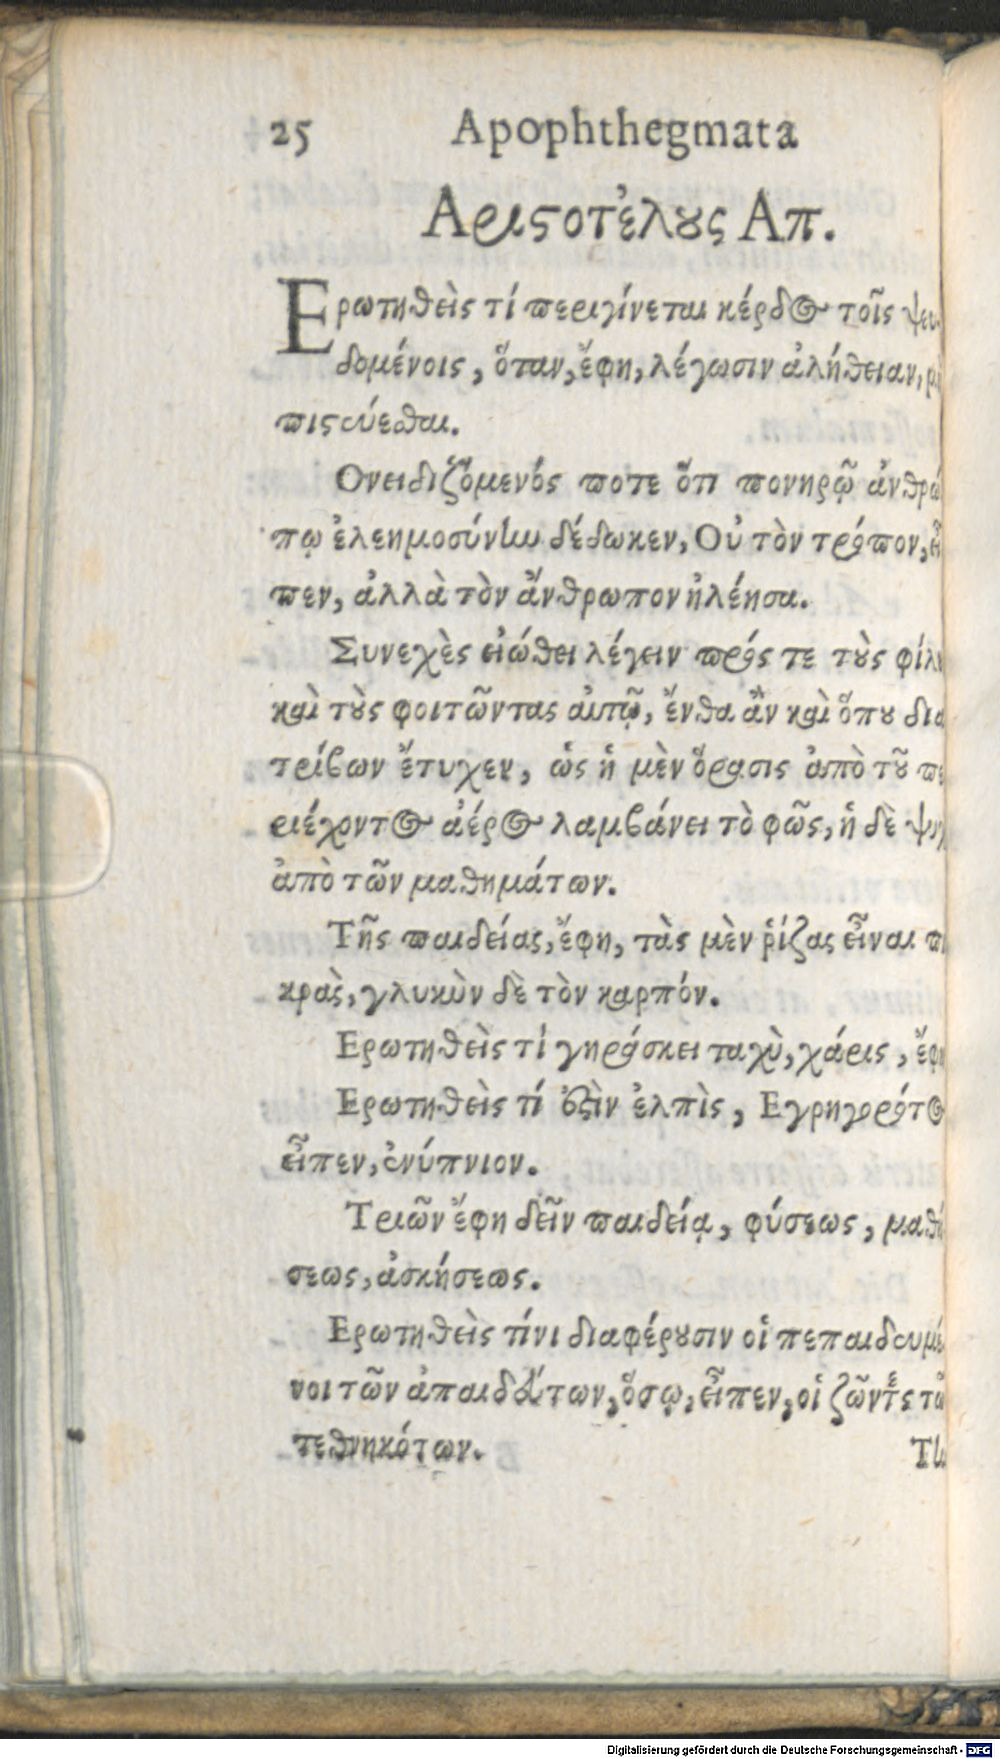 25 Apophthegmata
Αριστοτέλους Απ.
Ερωτηθεὶς τί περιγίνεται κέρδος τοῖς ψευ-
δομένοις, ὅταν, ἔφη, λέγωσιν ἀλήθειαν, μὴ
πιστεύεσθαι.
Ονειδιζόμενός ποτε ὅτι πονηρῷ ἀνθρώ
πῳ ἐλεημοσύνην δέδωκεν, Οὐ τὸν τρόπον, εἶ
πεν, ἀλλὰ τὸν ἄνθρωπον ἠλέησα.
Συνεχὲς εἰώθει λέγειν πρός τε τοὺς φίλους
καὶ τοὺς φοιτῶντας αὐτῷ, ἔνθα ἂν καὶ ὅπου δια
τρίβων ἔτυχεν, ὡς ἡ μὲν ὅρασις ἀπὸ τοῦ πε
ριέχοντος ἀέρος λαμβάνει τὸ φῶς, ἡ δὲ ψυχὴ
ἀπὸ τῶν μαθημάτων.
Τῆς παιδείας, ἔφη, τὰς μὲν ῥίζας εἶναι πι
κρὰς, γλυκὺν δὲ τὸν καρπόν.
Ερωτηθεὶς τί γηράσκει ταχὺ, χάρις, ἔφη
Ερωτηθεὶς τί ἐστὶν ἐλπὶς, Εγρηγορότος
εἶπεν, ἐνύπνιον.
Τριῶν ἔφη δεῖν παιδείᾳ, φύσεως, μαθή
σεως, ἀσκήσεως.
Ερωτηθεὶς τίνι διαφέρουσιν οἱ πεπαιδευμέ
νοι τῶν ἀπαιδεύτων, ὅσῳ, εἶπεν, οἱ ζῶντες τῶν
τεθνηκότων. Την
Digitalisierung gefördert durch die Deutsche Forschungsgemeinschaft - DFG